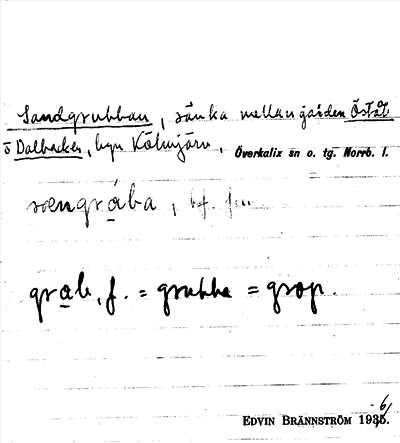 Sandgrubban, sänka mellan gården Östat
o Dalbacken, byn Kölmjärv, Överkalix sn o. tg. Norrb. l.
soengråba, bf. f...
grab, f. = grubba = grop.
-6/
EDVIN BRÄNNSTRÖM 1935.